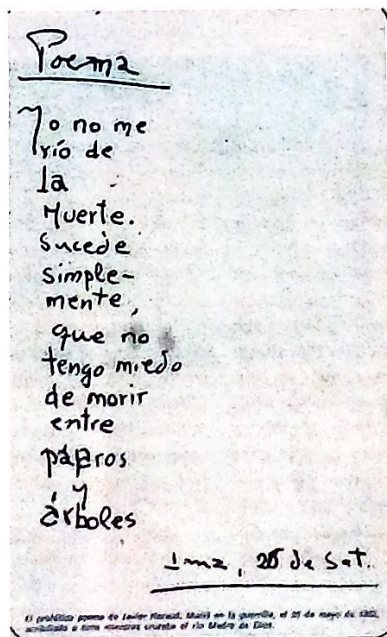 Poema
Yo no me
río de
la
Muerte.
Sucede
simple-
mente,
que no
tengo miedo
de morir
entre
pájaros
y
árboles
de Set.
El profético poema de Javier Heraud. Murió en la guerrilla, el 15 de mayo de 1963,
acribillado a tiros mientras cruzaba el río Madre de Dios.